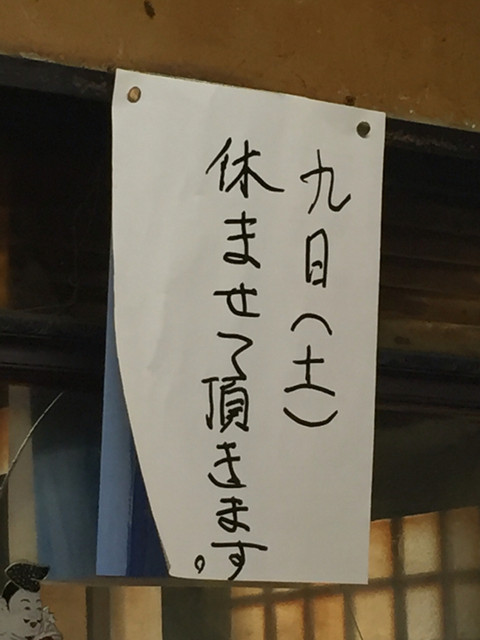 九日(土)
休ませて頂きます。